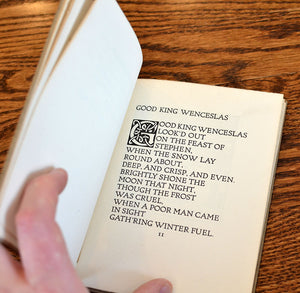 GOOD KING WENCESLAS
GOOD KING WENCESLAS
LOOK'D OUT
ON THE FEAST OF
STEPHEN,
WHEN THE SNOW LAY
ROUND ABOUT,
DEEP, AND CRISP, AND EVEN.
BRIGHTLY SHONE THE
MOON THAT NIGHT,
THOUGH THE FROST
WAS CRUEL,
WHEN A POOR MAN CAME
IN SIGHT
GATH'RING WINTER FUEL.
11